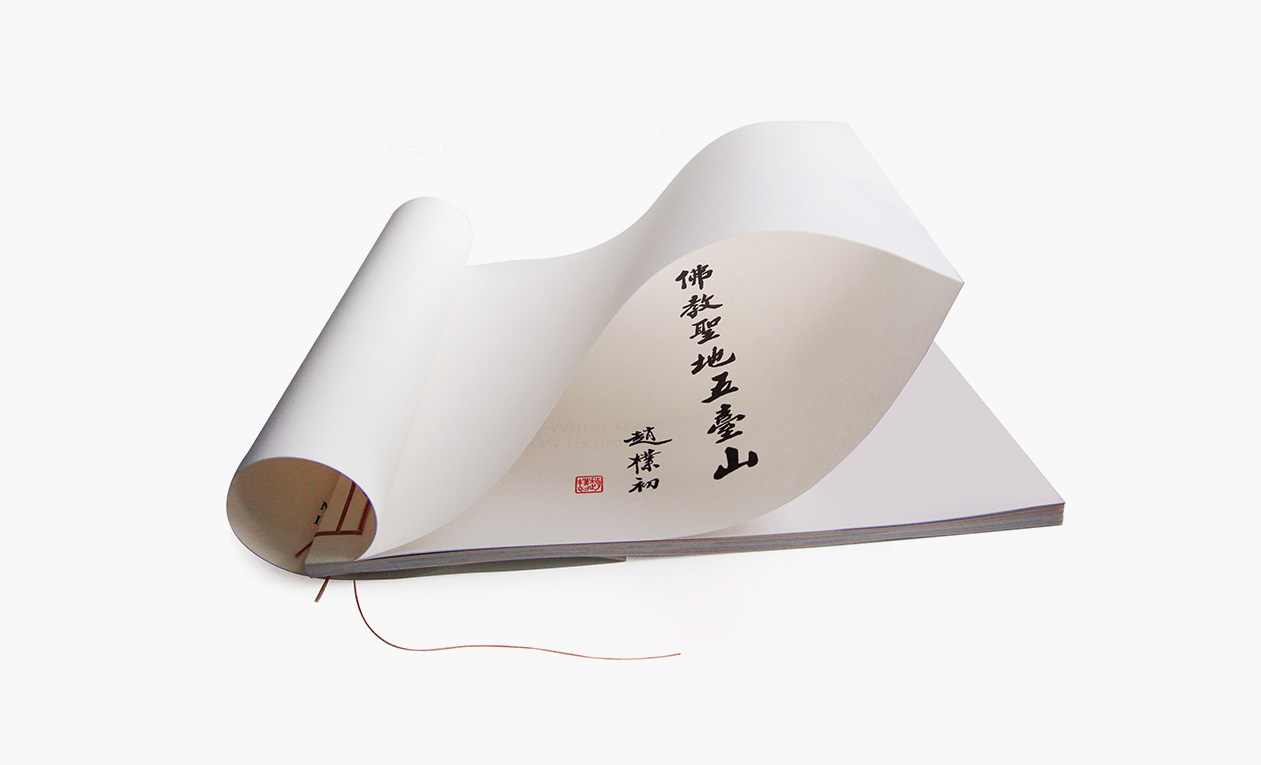 佛教聖地五臺山
趙樸初